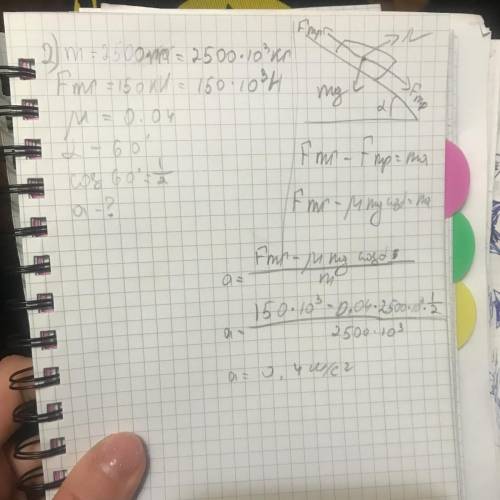 2) m = 2500 = 2500·10³кг
Fтг = 150кН = 150·10³Н
μ = 0.04
α - 60°
cos 60° = 1/2
a - ?
Fтг
N
mg
Fтр
α
Fтг - Fтр = ma
Fтг - μmg cosα = ma
a = (Fтг - μ mg cosα) / m
a = (150·10³ - 0.04·2500·10³·1/2) / 2500·10³
a = 0,4 м/с²